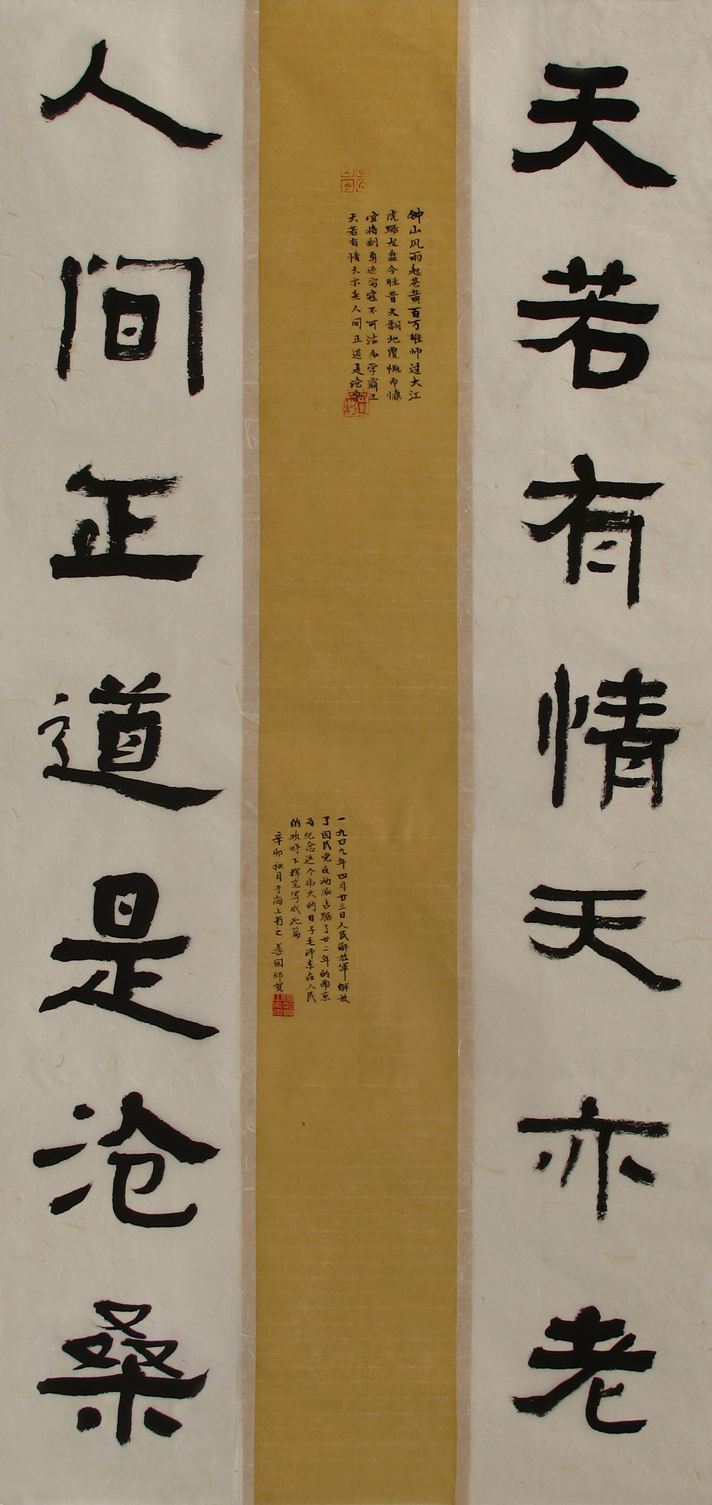 天若有情天亦老
人间正道是沧桑
钟山风雨起苍黄百万雄师过大江
虎踞龙盘今胜昔天翻地覆慨而慷
宜将剩勇追穷寇不可沽名学霸王
天若有情天亦老人间正道是沧桑
一九四九年四月廿三日人民解放军解放
了国民党反动派占据了廿二年的南京
为纪念这个伟大的日子毛泽东在人民
的欢呼下挥笔写成此篇
辛卯秋月于海上